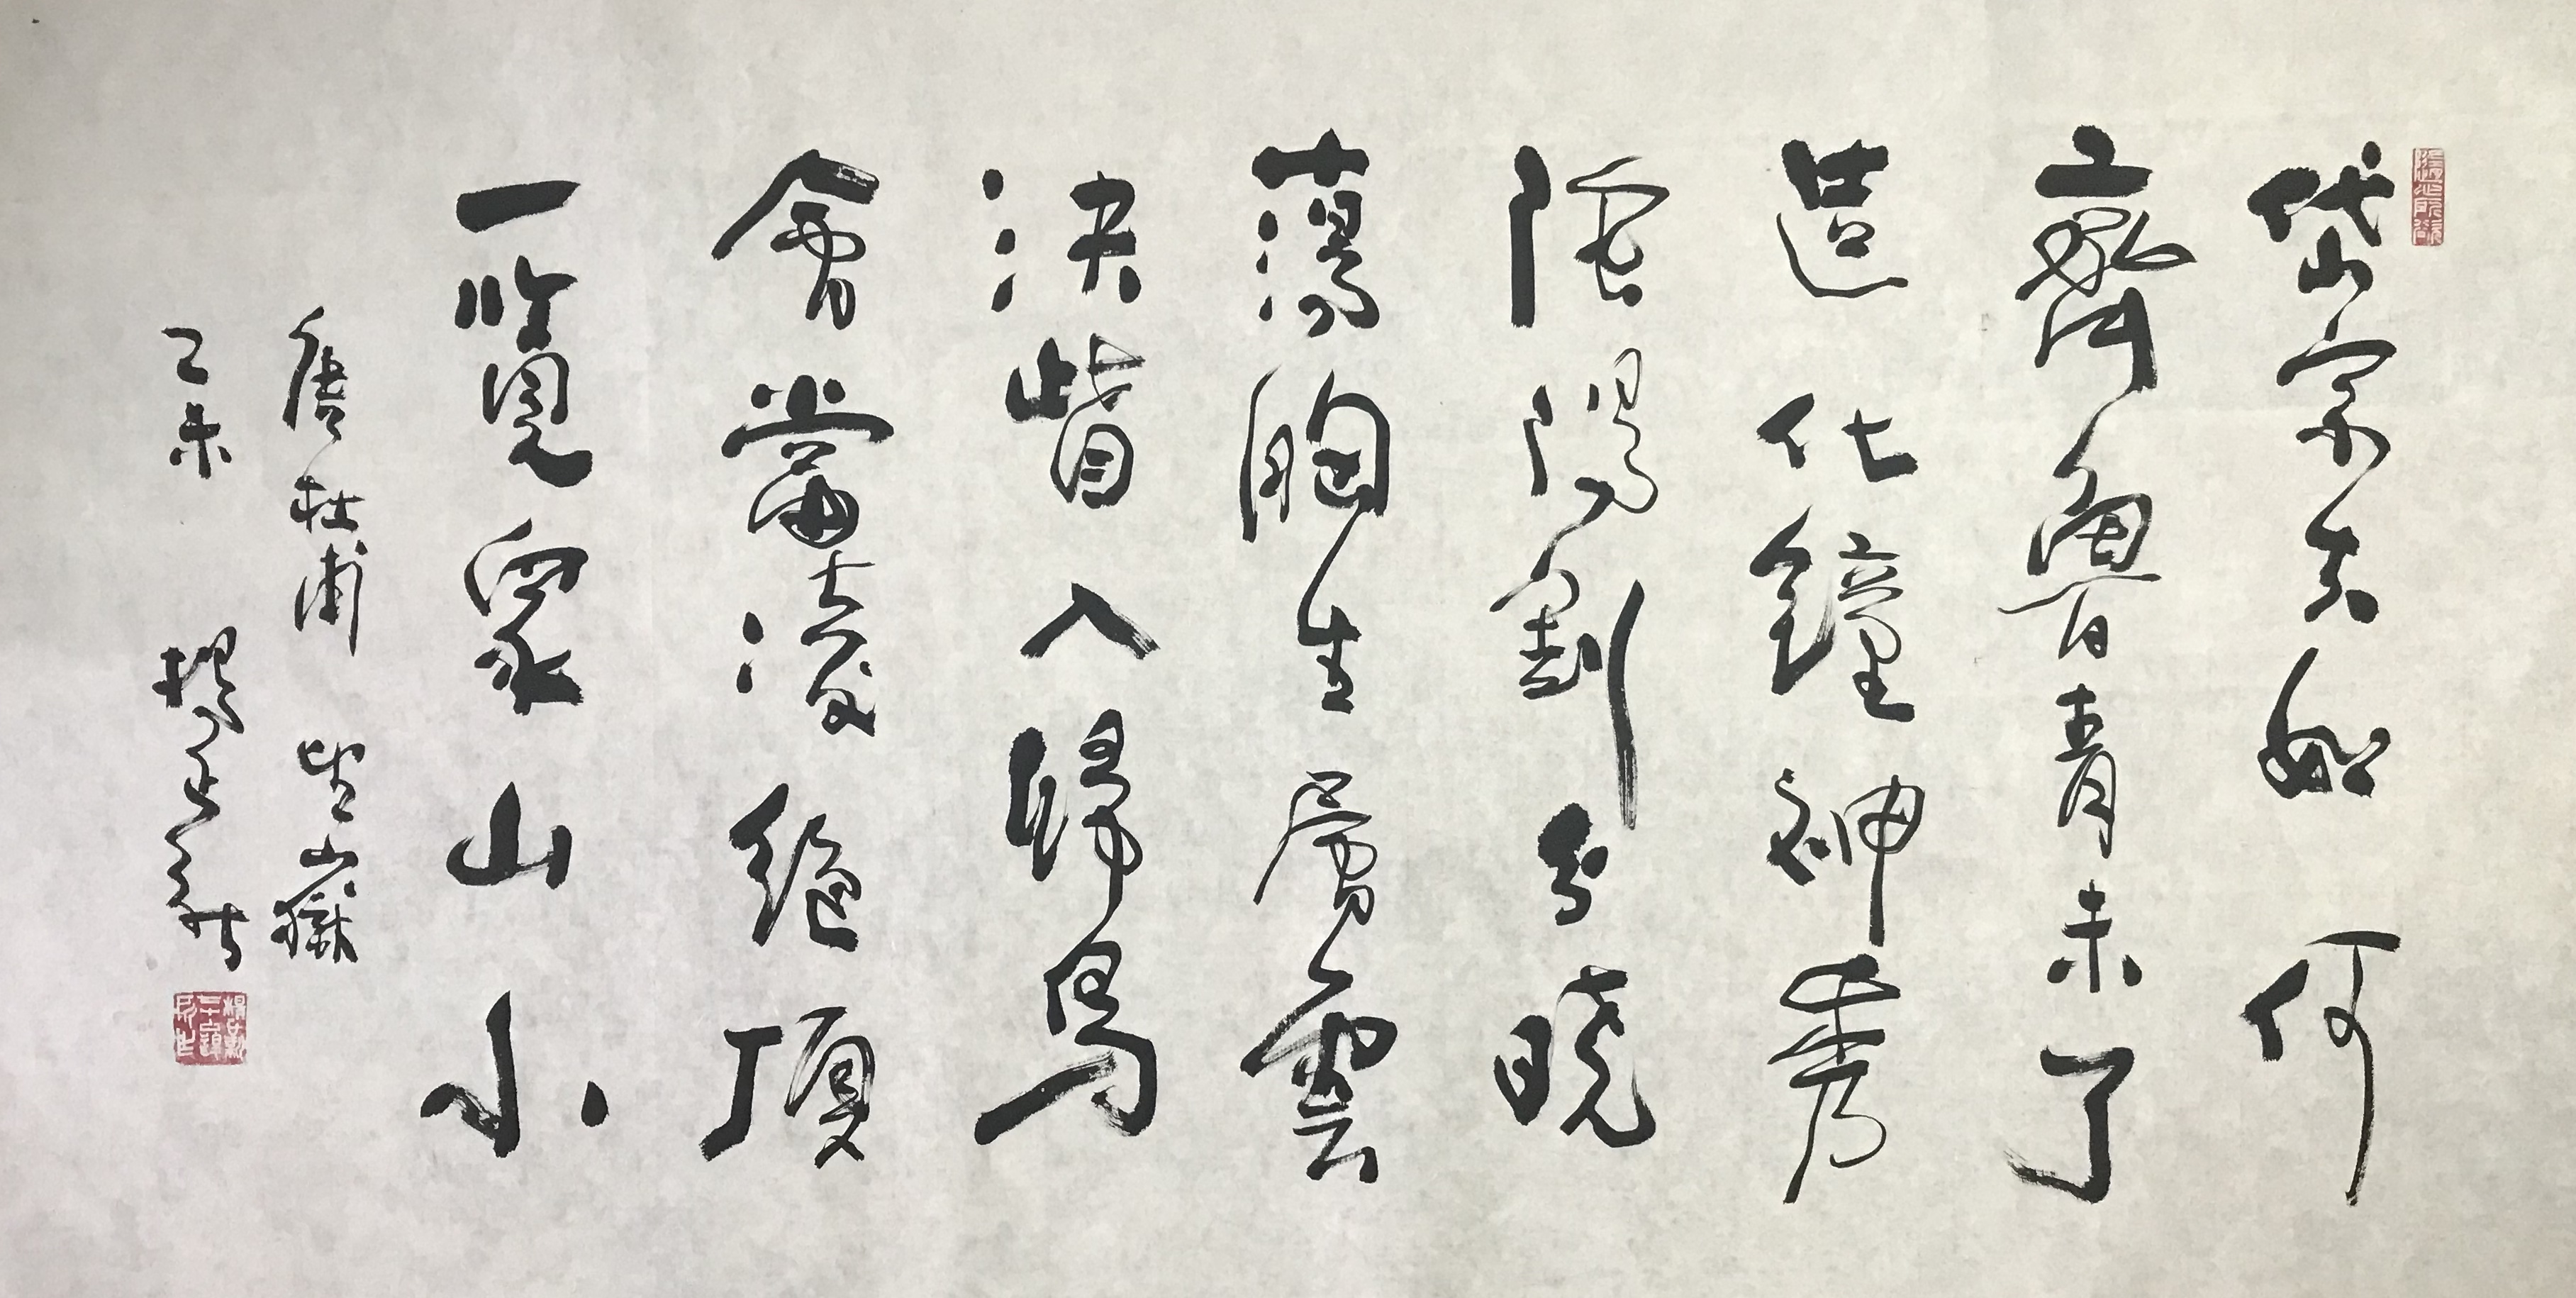 岱宗夫如何
齊魯青未了
造化鐘神秀
陰陽割分曉
蕩胸生層雲
決眥入歸鳥
會當凌絕頂
一覽衆山小
唐杜甫 望山嶽
乙未